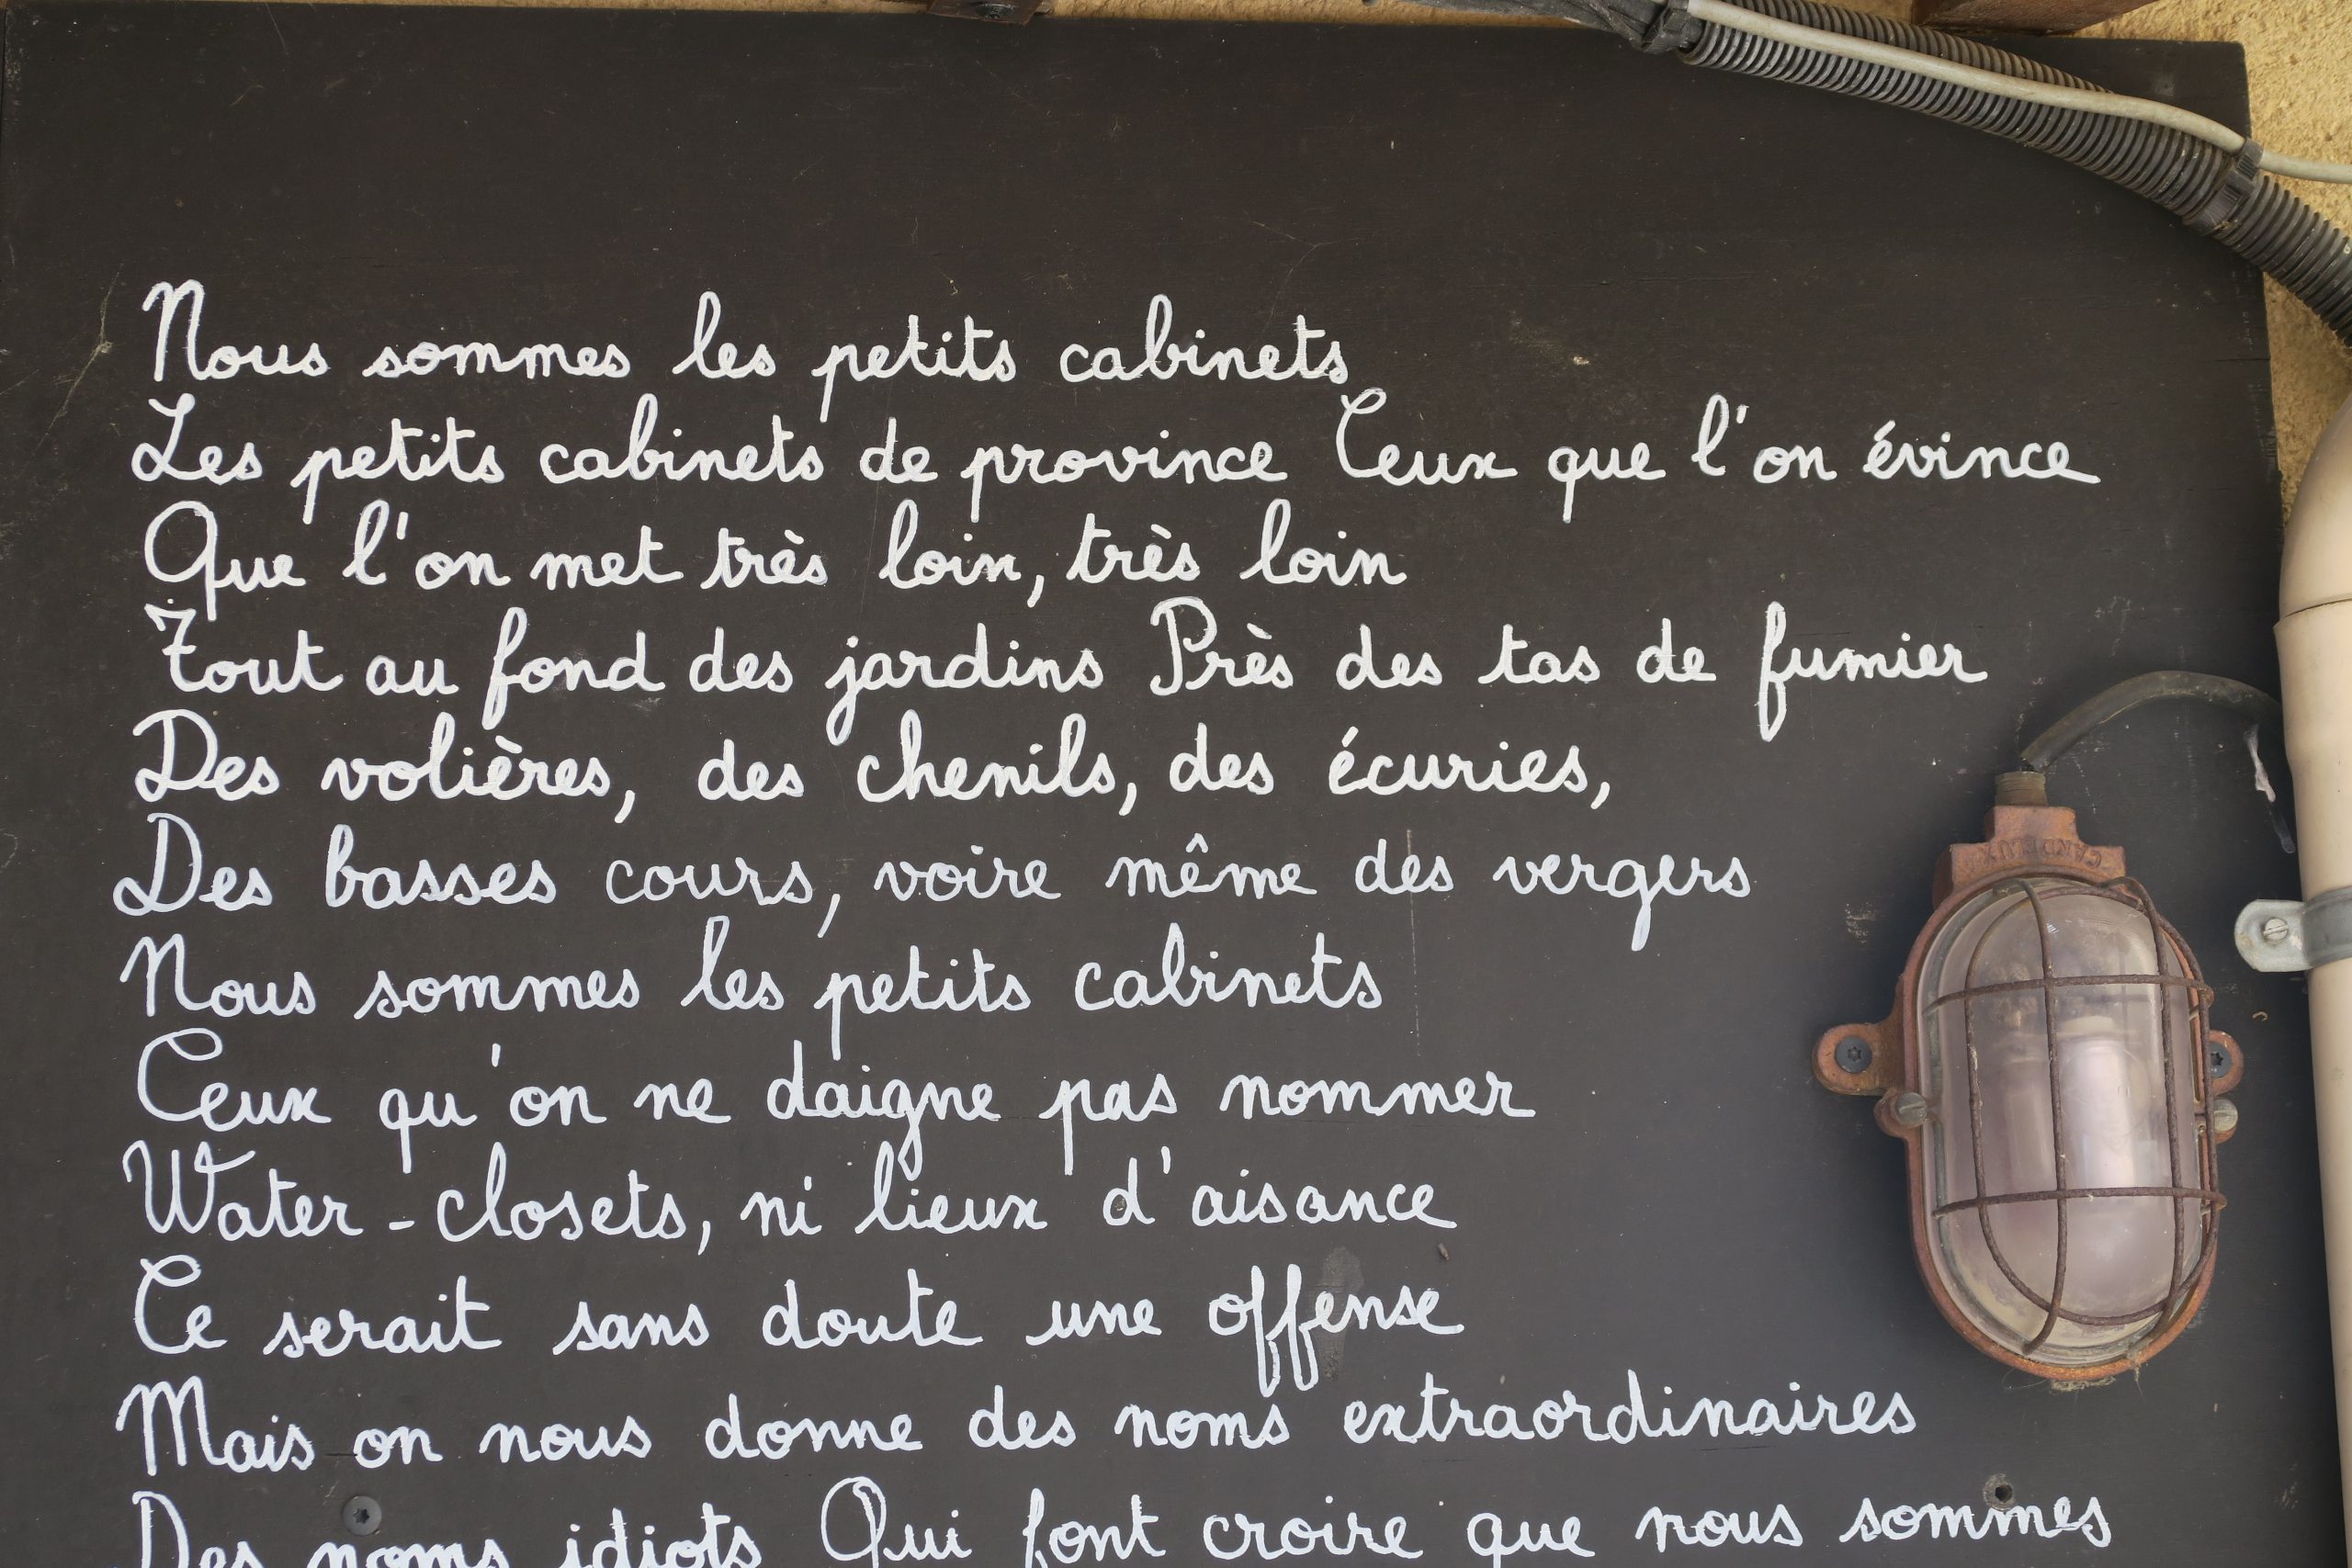 Nous sommes les petits cabinets
Les petits cabinets de province Ceux que l'on évince
Que l'on met très loin, très loin
Tout au fond des jardins Près des tas de fumier
Des volières, des chenils, des écuries,
Des basses cours, voire même des vergers
Nous sommes les petits cabinets
Ceux qu'on ne daigne pas nommer
Water-closets, ni lieux d'aisance
Ce serait sans doute une offense
Mais on nous donne des noms extraordinaires
Des noms idiots Qui font croire que nous sommes